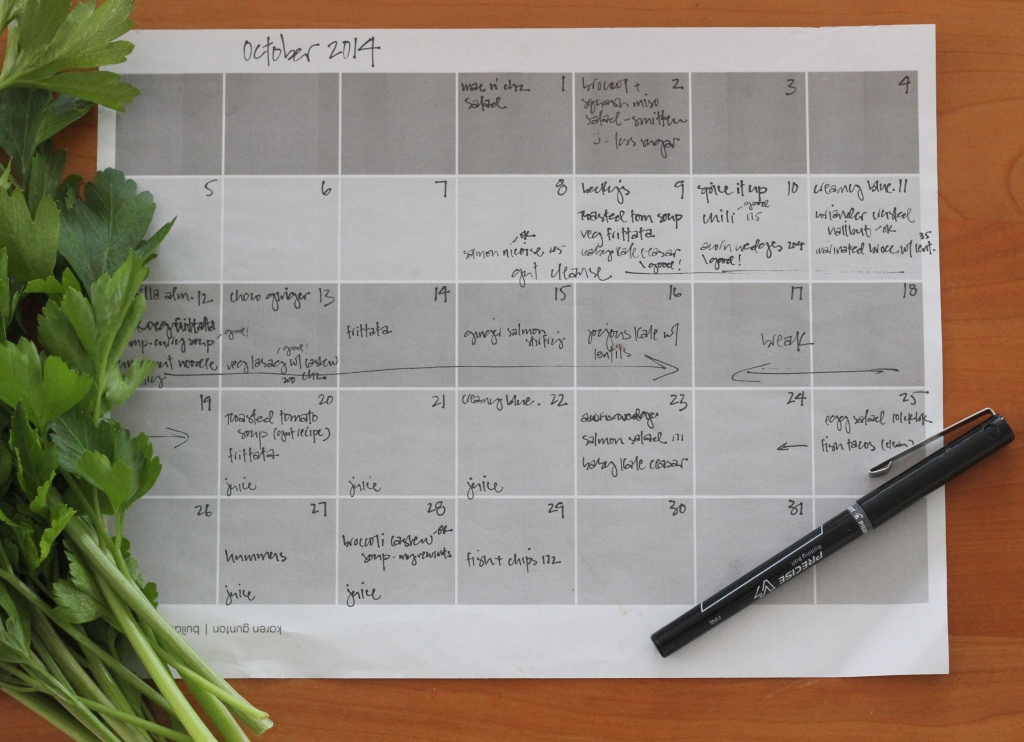 october 2014
mac n' chz
salad
1
broccoli +
squash miso
salad - smitten
less sugar
2
3
4
5
6
7
8
ok
salmon nicoise
gut cleanse
9
roasted tom soup
veg frittata
baby kale ceasar
good!
spice it up
10
good
chili 115
acorn wedges
good!
creamy blue. 11
coriander crusted
halibut - ok
35
marinated brocc. w/ lent.
alm. 12
frittata
soup
noodle
choco ginger 13
good!
good!
veg lasag w/ cashew
chz
14
frittata
15
ginger salmon
stirfry
16
joyous kale w/
lentils
17
break
18
19
20
roasted tomato
soup (gut recipe)
frittata
juice
21
juice
creamy blue. 22
juice
23
salmon salad 171
baby kale ceasar
24
25
egg salad
fish tacos (clean)
26
27
hummus
juice
28
broccoli cashew - ok
soup
juice
29
fish + chips 172
30
31
karen gunton | build
PRECISE V7
Rolling Ball
FINE